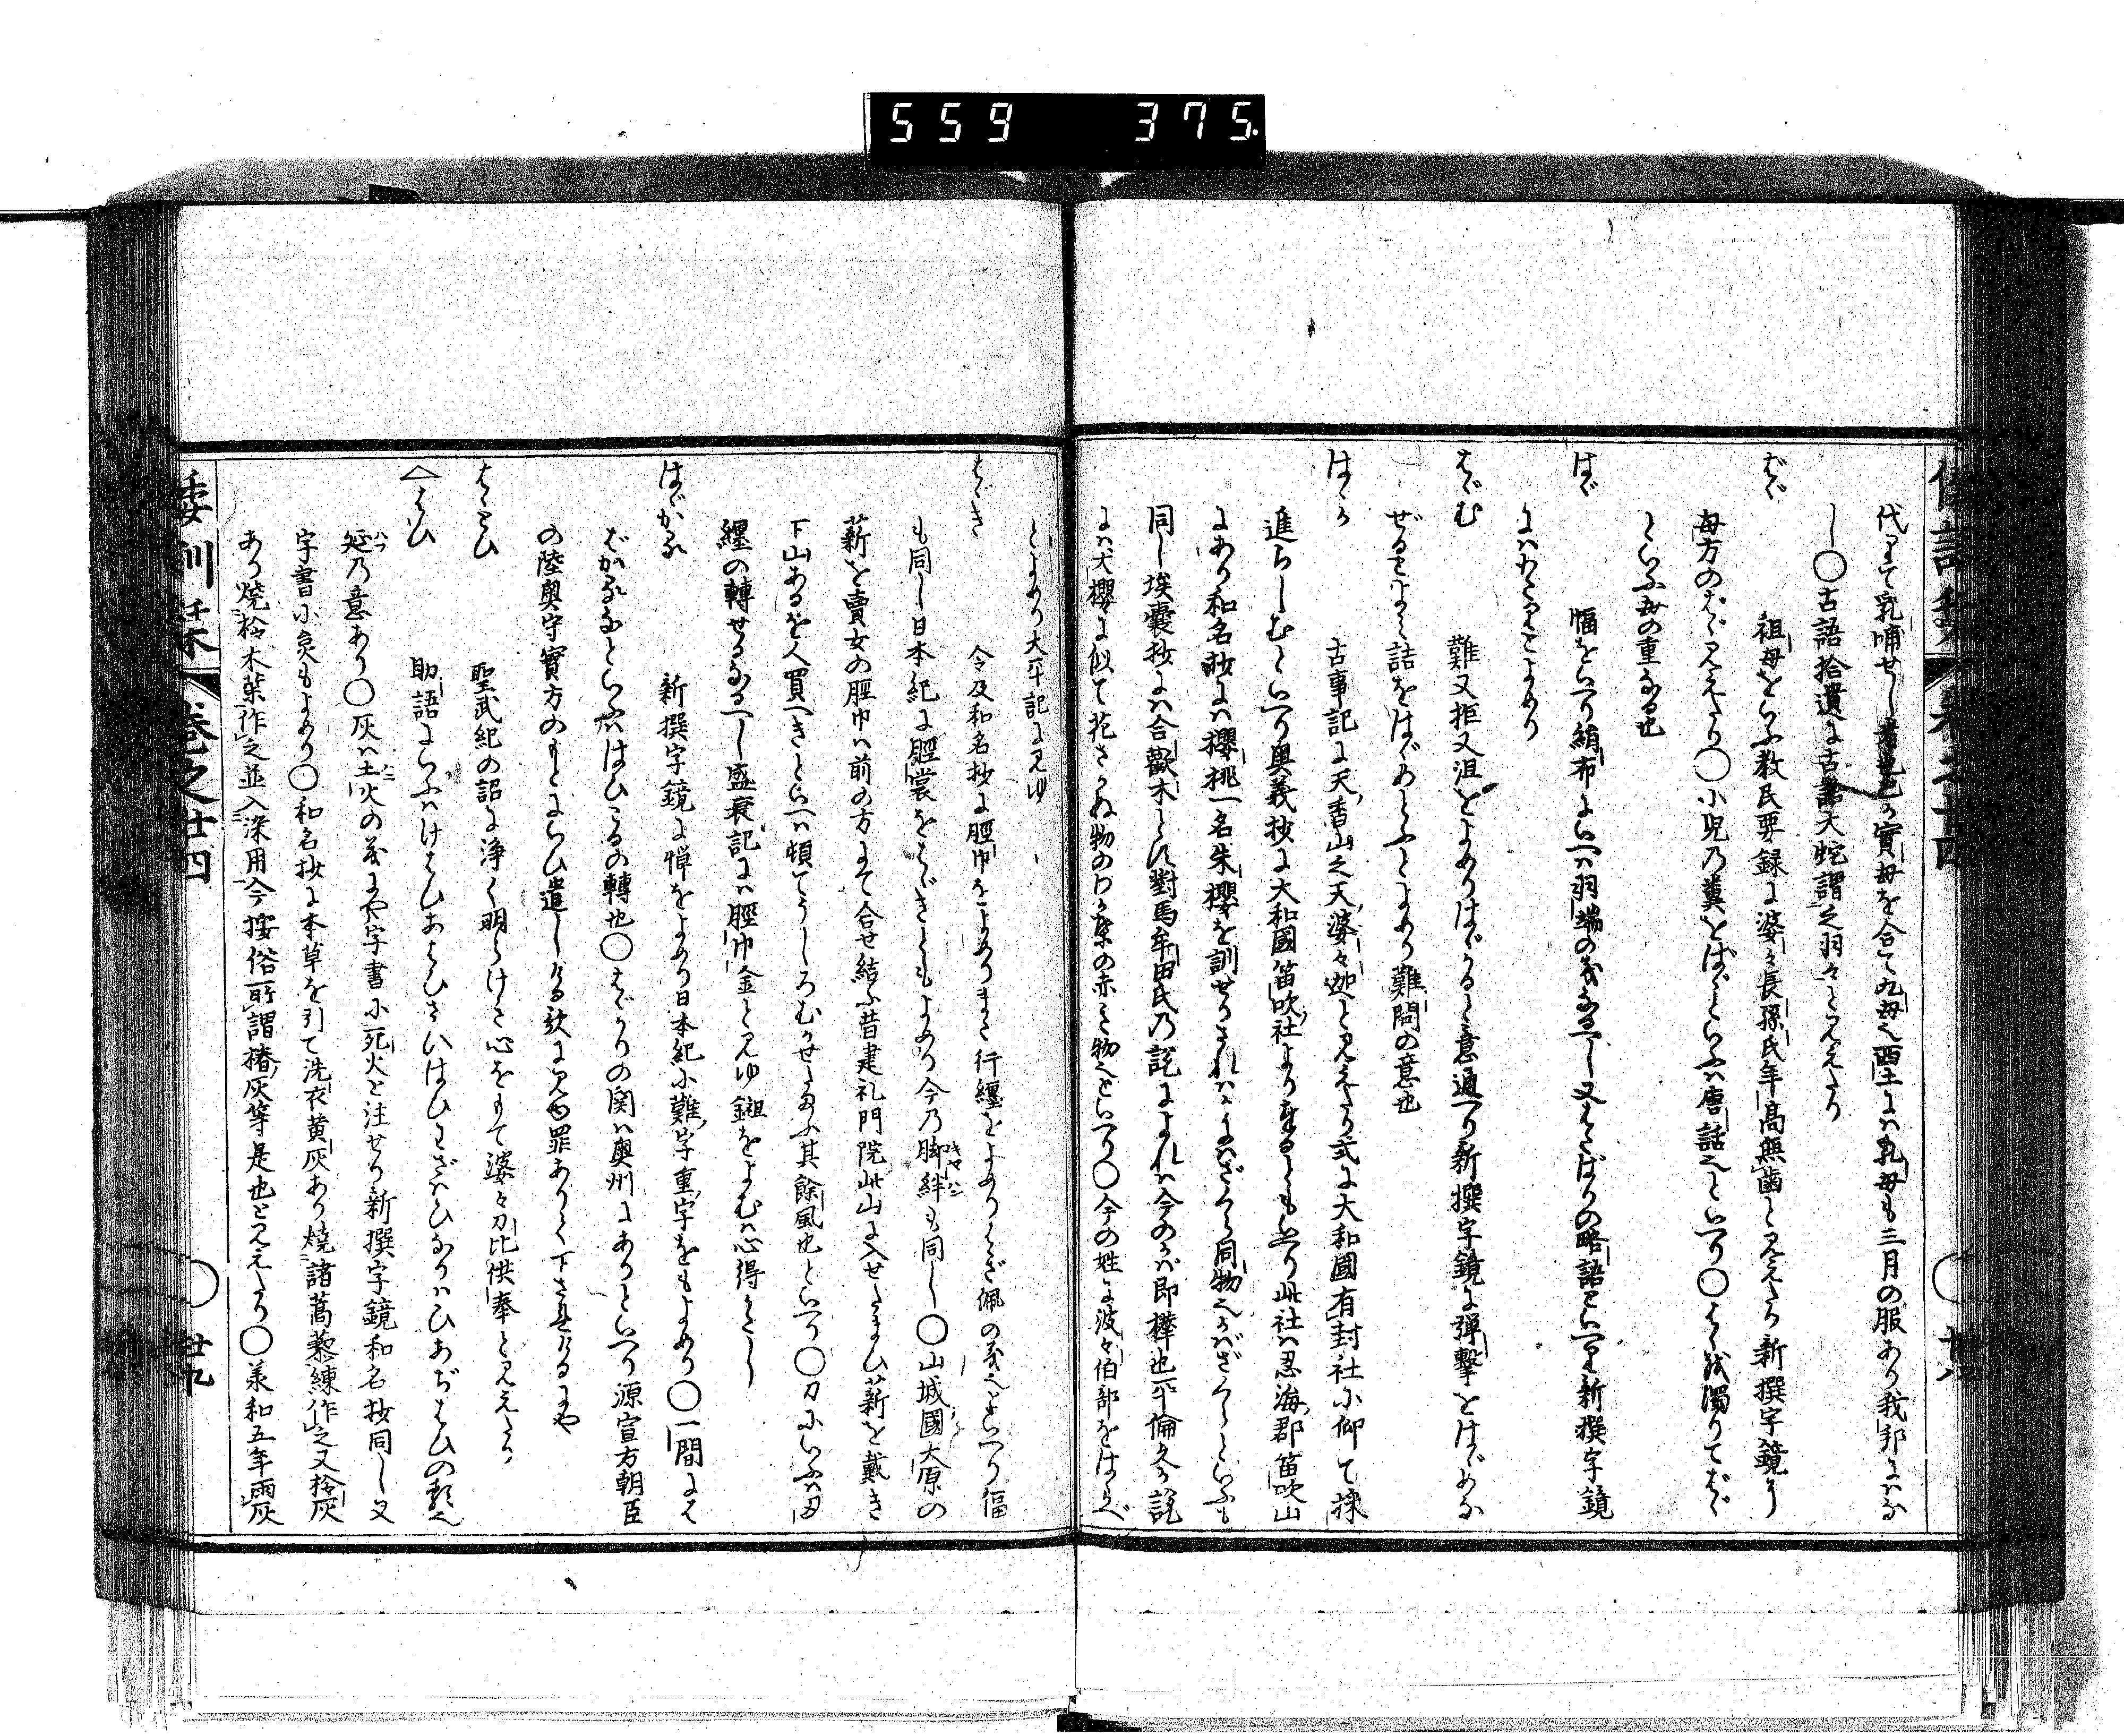 559 375
代りて乳哺せし者也已か實母を合て九母也西土には乳母も三月の服あり我邦にはな
し〇古語拾遺に古語大蛇謂之羽々と見えたり
ばゞ 祖母をいふ教民要録に婆々長孫氏年髙無齒と見えたり新撰字鏡に
母方のばゞ見えたり〇小児乃糞をばゞといふハ唐話也といへり〇はゝ或濁りてばゞ
といふ母の重なる也
はゞ 幅をいへり絹布にいへハ羽端の義なるべし又はたばりの略語といへり新撰字鏡
にハわたりとよめり
はゞむ 難又拒又沮をよめりはゞかると意通へり新撰字鏡に弾撃をはゞめな
ぜるとよみ詰をはゞめとふとよめり難問の意也
はゝか 古事記に天香山之天婆々迦と見えたり式に大和國有封社小仰て採
進らしむといへり奥義抄に大和國笛吹社より奉るともいへり此社ハ忍海郡笛吹山
にあり和名抄にハ櫻桃一名朱櫻を訓せりされハかにはざくら同物也かばざくらといふも
同し埃嚢抄にハ合歡木とす對馬牟田氏乃説によれハ今のかば即樺也平倫久か説
にハ犬櫻に似て花さかぬ物のわか葉の赤き物也といへり〇今の姓に波々伯部をはゝかべ
とよめり大平記に見ゆ
はゞき 令及和名抄に脛巾をよめりまた行纏をよめりはぎ佩の義也といへり偪
も同し日本紀に脛裳をはゞきともよめり今乃脚絆キヤハンも同し〇山城國大原の
薪を賣女の脛巾ハ前の方にて合せ結ふ昔建礼門院此山に入せたまひ薪を戴き
下山あるを人買へきといへハ頓てうしろむかせたまふ其餘風也といへり〇刀にいふハ
纏の轉せるなるべし盛衰記にハ脛巾金と見ゆ鎺をよむハ心得かたし
はゞかる 新撰字鏡に憚をよめり日本紀小難字重字をもよめり〇一間には
ばかるなといふハはひこるの轉也〇はゞかりの関ハ奥州にありといへり源宣方朝臣
の陸奥守實方のもとにいひ遣しける歌に見ゆ罪ありて下されけるにや
はゝとひ 聖武紀の詔に浄く明らけき心をもて婆々刀比供奉と見えたり
△はひ 助語にいふハけはひあはひさいはひわざハひなりハひあぢはひの類也
延ハフ乃意あり〇灰ハ土火の義にや字書小死火と注せり新撰字鏡和名抄同し又
字書小炱もよめり〇和名抄に本草を引て洗衣黄灰あり燒諸蒿藜練作之又柃灰
あり燒柃木葉作之並入染用今按俗所謂椿灰等是也と見えたり〇美和五年雨灰
倭訓栞 卷之廿四 廿九